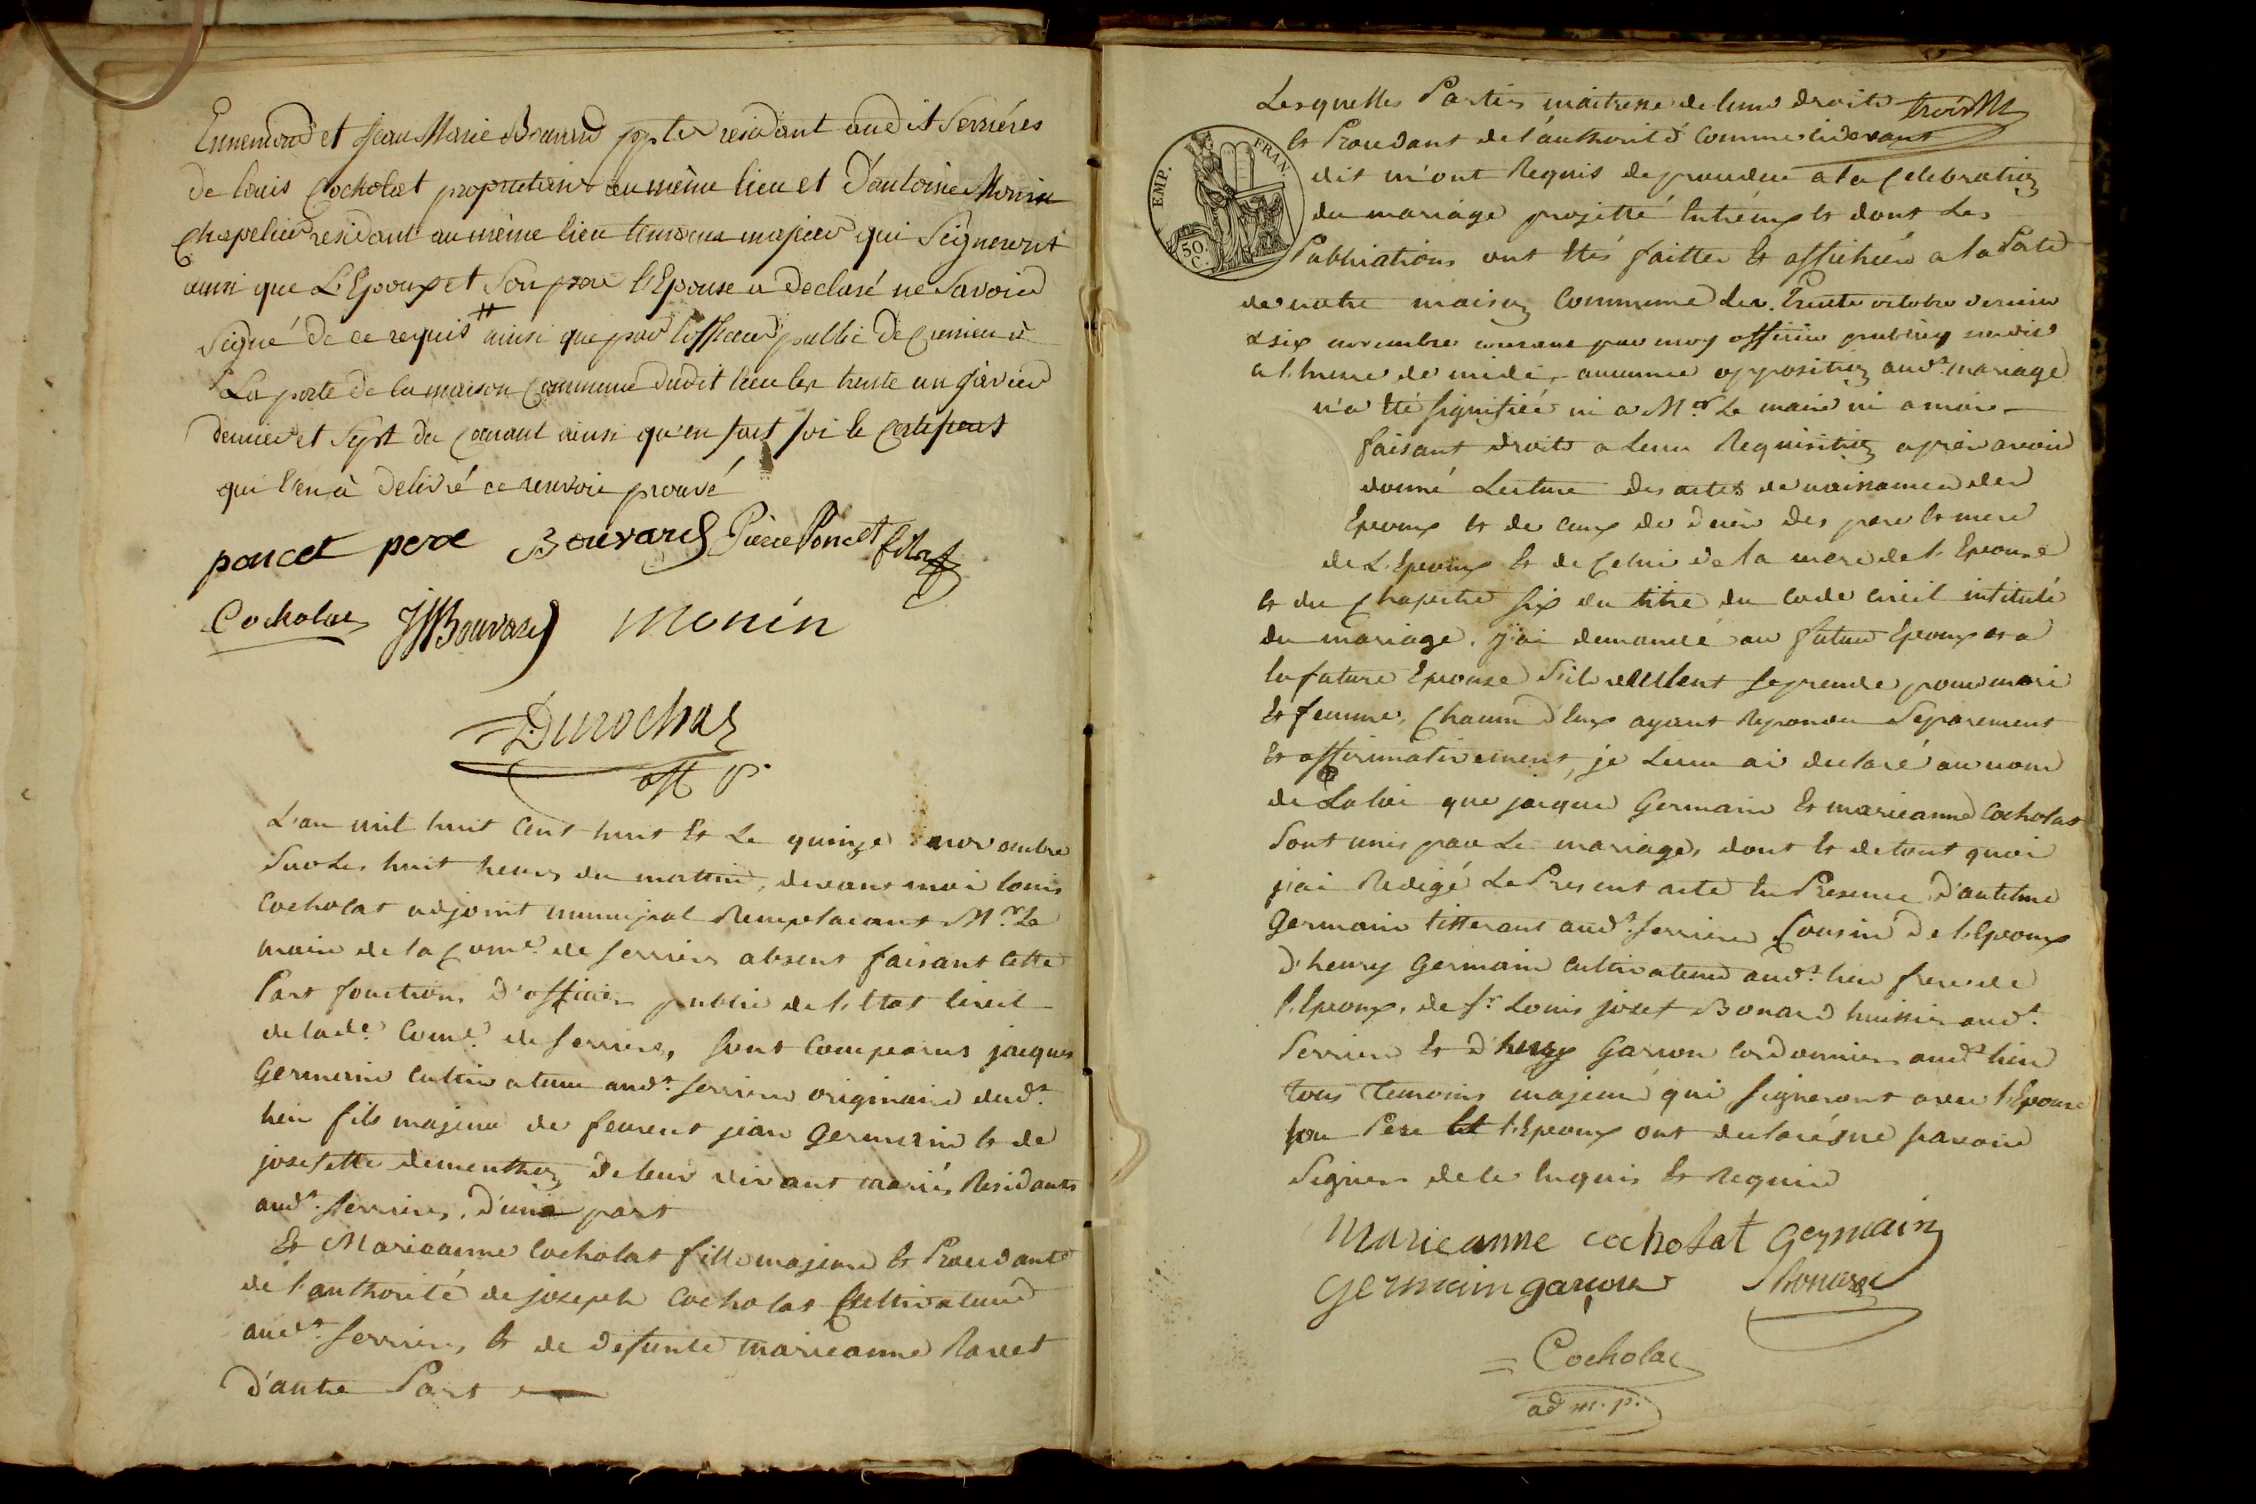 Ennemond et Jean Marie Bouvard pptres residant audit Serriéres
de louis Cocholat proprietaire au même lieu et D'antoine Monin
Chapelier residant au même lieu temoins majeurs qui Signeront
ainsi que L'Epoux et Son pere l'Epouse a declaré ne Savoir
Signé de ce requis # ainsi que par l'officier public de
La porte de la maison Commune dudit lieu les trente un janvier
dernier et Sept du Courant ainsi qu'en fait foi le Certificat
qui l'en à delivré ce renvoie prouvé
poncet pere Bouvard Pierre Poncet fils
Cocholat JMBouvard monin
Durochat
off P.
L'an mil huit Cent huit Et Le quinze novembre
Sur Les huit heures du mattin, devant moi louis
Cocholat adjoint municipal Remplacant Mr. Le
maire de la Come. de Serrieres absent faisant Cette
Part fonctions D'officier public de l'Etat Civil
de lade. Come. de Serrieres, Sont Comparus jacques
Germain Cultivateur audt. Serrieres originaire dudt.
lieu fils majeur de feurent jean Germain Et de
josephette dementhon de leur vivant mariés Residants
audt. Serrieres, D'une part
Et Marieanne Cocholat fille majeure Et Procedante
de l'authorité de joseph Cocholat Cultivateur
audt. Serrieres, Et de Defunte marieanne Ravet
D'autre Part
Lesquelles Parties maitresse de leurs droits
Et Procedant de l'authorité Comme cidevant
dit m'ont Requis de proceder a la Celebration
du mariage projetté Entr'eux Et dont Les
Publications ont Etés faittes Et affichées a la Porte
de notre maison Commune Les Trente octobre dernier
& six novembre courant par moy officier public
a l'heure de midi, aucunne opposition audt. mariage
n'a Eté signifiée ni a Mr. Le maire ni a moi
faisant droits a Leur Requisition après avoir
donné Lecture des actes de naissances des
Epoux Et de Ceux de Décès des pere Et mere
de L'Epoux Et de Celui de la mere de l'Epouse
Et du Chapitre Six du titre du Code Civil intitulé
du mariage. j'ai demandé au futur Epoux et a
la future Epouse S'ils veullent se prendre pour mari
Et femme, Chacun d'Eux ayant Repondu Séparement
Et affirmativement, je Leur ai declaré au nom
de La loi que jacque Germain Et marieanne Cocholat
Sont unis par Le mariage, dont Et de tout quoi
j'ai Redigé Le Present acte En Presence D'antelme
Germain tisserant audt. Serrieres Cousin De l'Epoux
D'henry Germain Cultivateur audt. lieu frere de
l'Epoux, de Sr. Louis josef Bonard huissier audt.
Serrieres Et D'henry Garcon Cordonnier audt. lieu
tous temoins majeurs qui Signeront avec l'Epouse
son Pere Et l'Epoux ont declarés ne savoir
Signer de Ce Enquis Et Requis
marieanne cocholat Germain
germain garcon Bonard
= Cocholat
ad m. p.
EMP. FRAN.
50.
C.